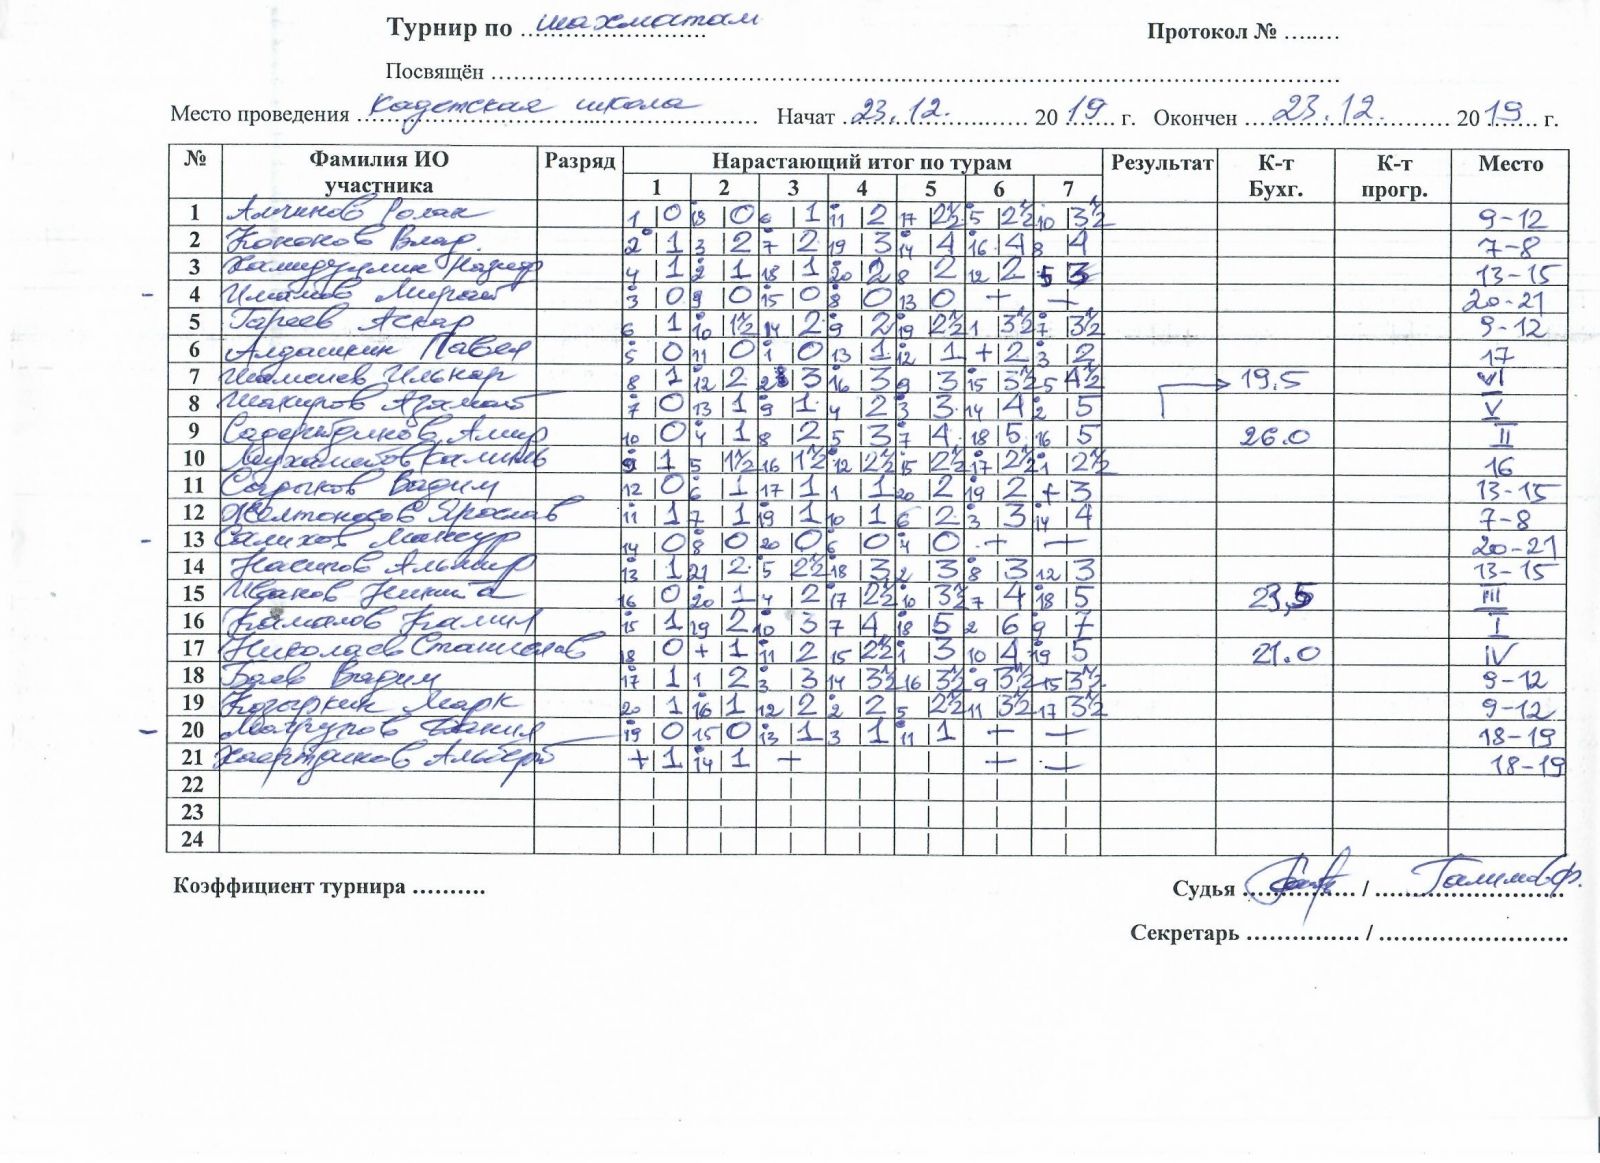 Турнир по шахматам
Протокол № ........
Посвящён
Место проведения Кадетская школа Начат 23.12. 2019 г. Окончен 23.12. 2019 г.
№ Фамилия ИО участника Разряд Нарастающий итог по турам Результат К-т Бухг. К-т прогр. Место
1 2 3 4 5 6 7
1 Алчинов Ролан 1 0 18 0 6 1 11 2 17 2½ 5 2½ 10 3½ 9-12
2 Кононов Влад. 2 1 3 2 7 2 19 3 14 4 16 4 8 4 7-8
3 Хамидуллин 4 1 2 1 18 1 20 2 8 2 12 2 5 3 13-15
4 3 0 9 0 15 0 8 0 13 0 – – 20-21
5 Гареев Аскар 6 1 10 1½ 14 2 9 2 19 2½ 1 3½ 7 3½ 9-12
6 Алдашкин Павел 5 0 11 0 1 0 13 1 12 1 + 2 3 2 17
7 Шамсиев Ильнар 8 1 12 2 2 3 16 3 9 3 15 3½ 5 4½ 19.5 VI
8 Шакиров Азамат 7 0 13 1 9 1 4 2 3 3 14 4 2 5 V
9 Садертдинов Амир 10 0 4 1 8 2 5 3 7 4 18 5 16 5 26.0 II
10 Мухаметов 9 1 5 1½ 16 1½ 12 2½ 15 2½ 17 2½ 1 2½ 16
11 Вадим 12 0 6 1 17 1 1 1 20 2 19 2 + 3 13-15
12 Желтоносов Ярослав 11 1 7 1 19 1 10 1 6 2 3 3 14 4 7-8
13 Салихов Мансур 14 0 8 0 20 0 6 0 4 0 – – 20-21
14 Насипов Альмир 13 1 21 2 5 2½ 18 3 2 3 8 3 12 3 13-15
15 Иванов Никита 16 0 20 1 4 2 17 2½ 10 3½ 7 4 18 5 23,5 III
16 Камалов Камил 15 1 19 2 10 3 7 4 18 5 2 6 9 7 I
17 Николаев Станислав 18 0 + 1 11 2 15 2½ 1 3 10 4 19 5 21.0 IV
18 Баев Вадим 17 1 1 2 3 3 14 3½ 16 3½ 9 3½ 15 3½ 9-12
19 Козыркин Марк 20 1 16 1 12 2 2 2 5 2½ 11 3½ 17 3½ 9-12
20 19 0 15 0 13 1 3 1 11 1 – – 18-19
21 Хаертдинов Альберт + 1 14 1 – – – 18-19
22
23
24
Коэффициент турнира ..........
Судья ............... / Галимов Ф.
Секретарь ............... / .........................